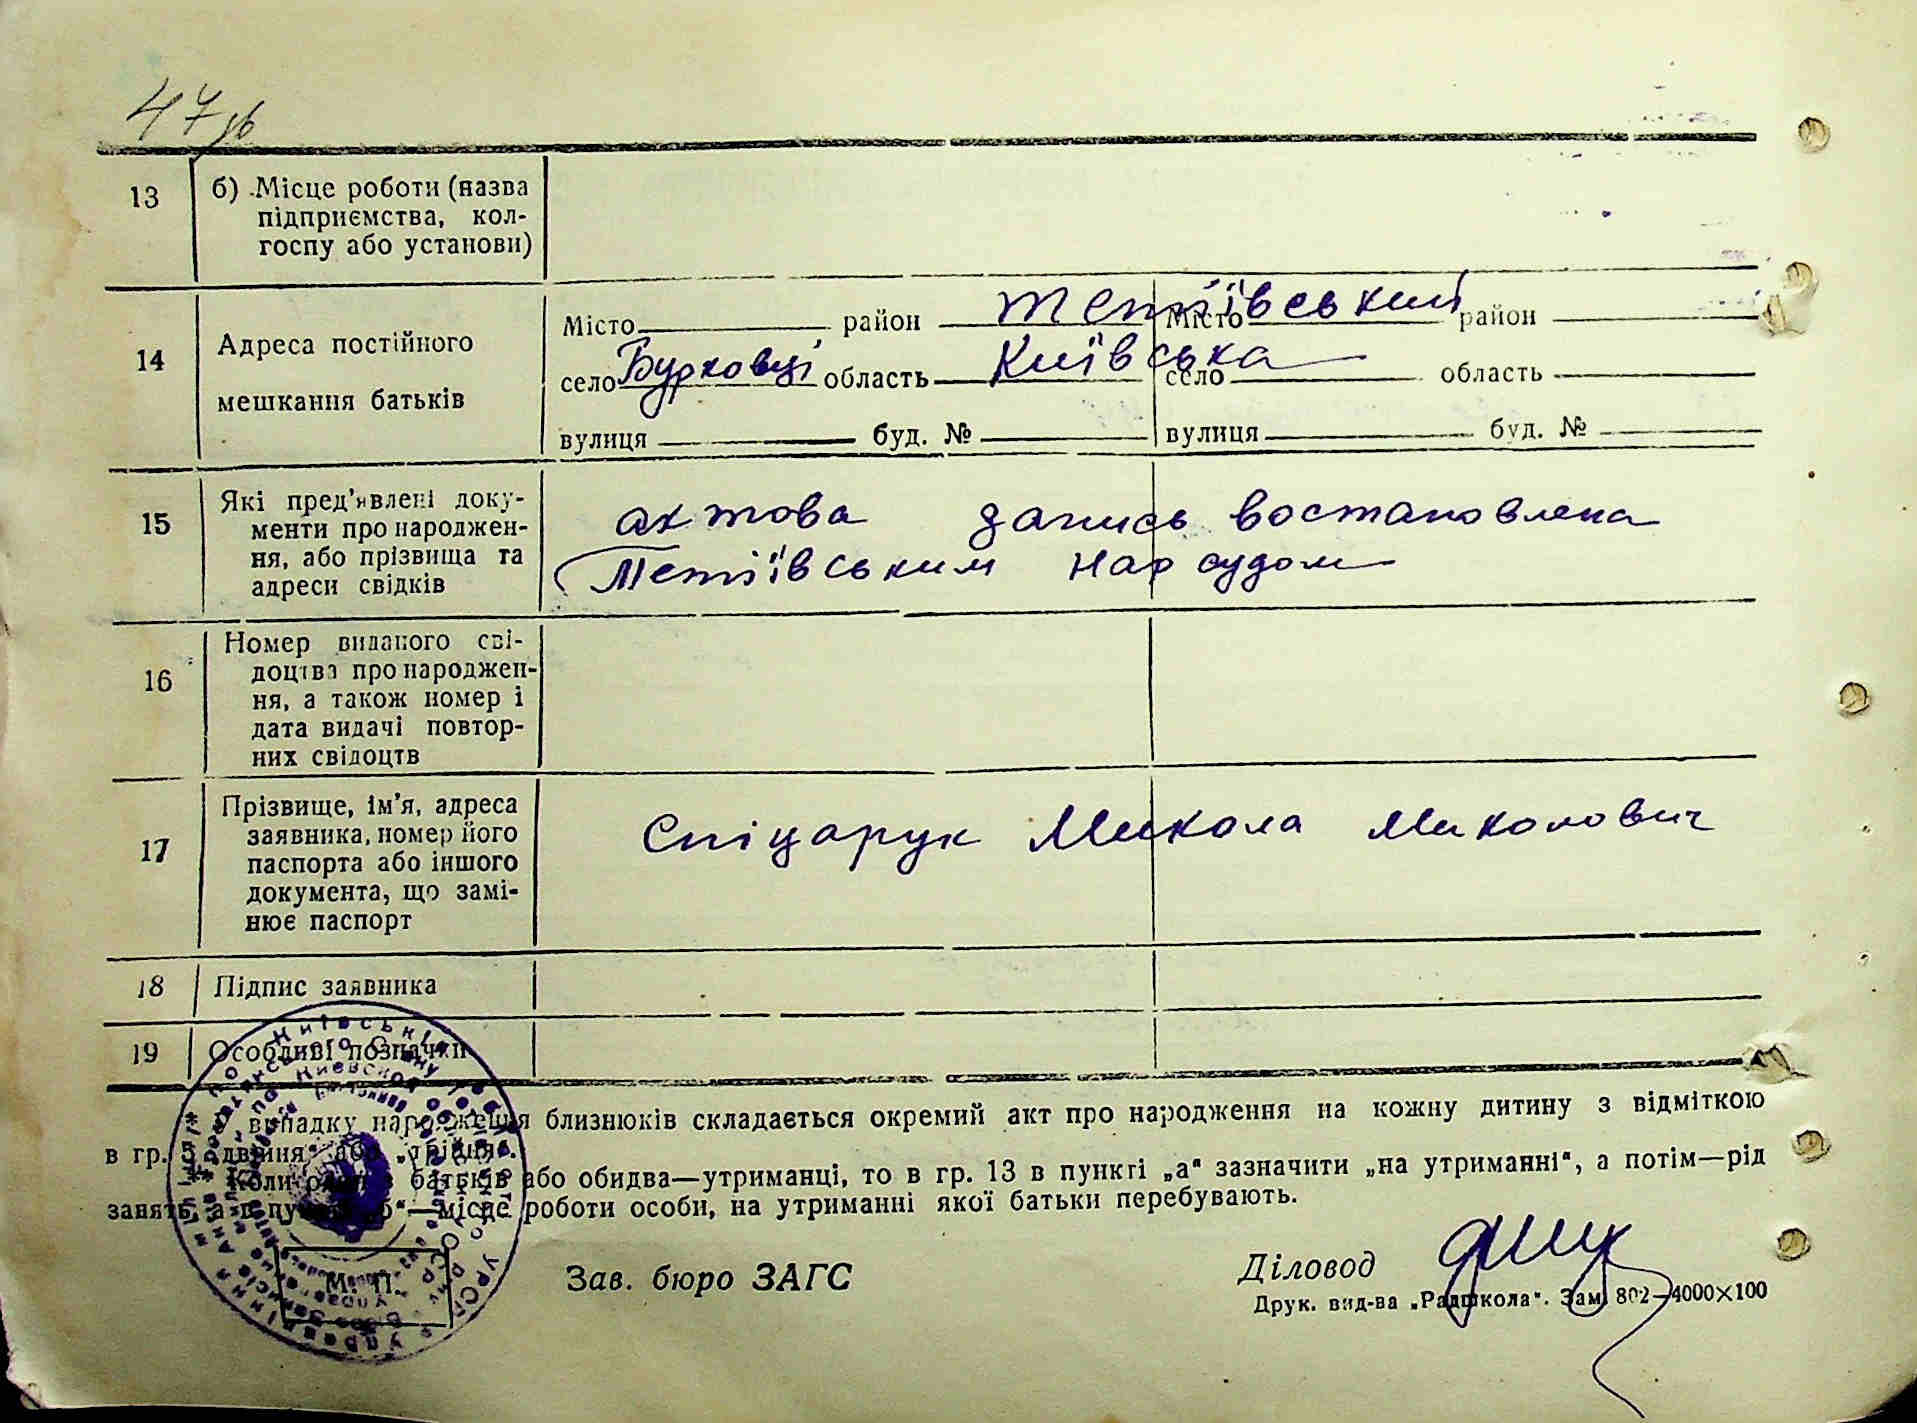 47зв
13 б) Місце роботи (назва
підприємства, кол-
госпу або установи)
14 Адреса постійного
мешкання батьків
Місто район Тетіївський Місто район
село Бурковці область Київська село область
вулиця буд. № вулиця буд. №
15 Які пред'явлені доку-
менти про народжен-
ня, або прізвища та
адреси свідків
актова запись востановлена
Тетіївським Нар судом
16 Номер виданого сві-
доцтва про народжен-
ня, а також номер і
дата видачі повтор-
них свідоцтв
17 Прізвище, ім'я, адреса
заявника, номер його
паспорта або іншого
документа, що замі-
нює паспорт
Спіцарук Микола Миколович
18 Підпис заявника
19 Особливі позначки
випадку народження близнюків складається окремий акт про народження на кожну дитину з відміткою
в гр. 5 „двійня" або „трійня".
Коли один з батьків або обидва—утриманці, то в гр. 13 в пункті „а" зазначити „на утриманні", а потім—рід
занять, а в пункті „б"—місце роботи особи, на утриманні якої батьки перебувають.
М. П.
Зав. бюро ЗАГС
Діловод
Друк. вид-ва „Радшкола". Зам. 802—4000×100